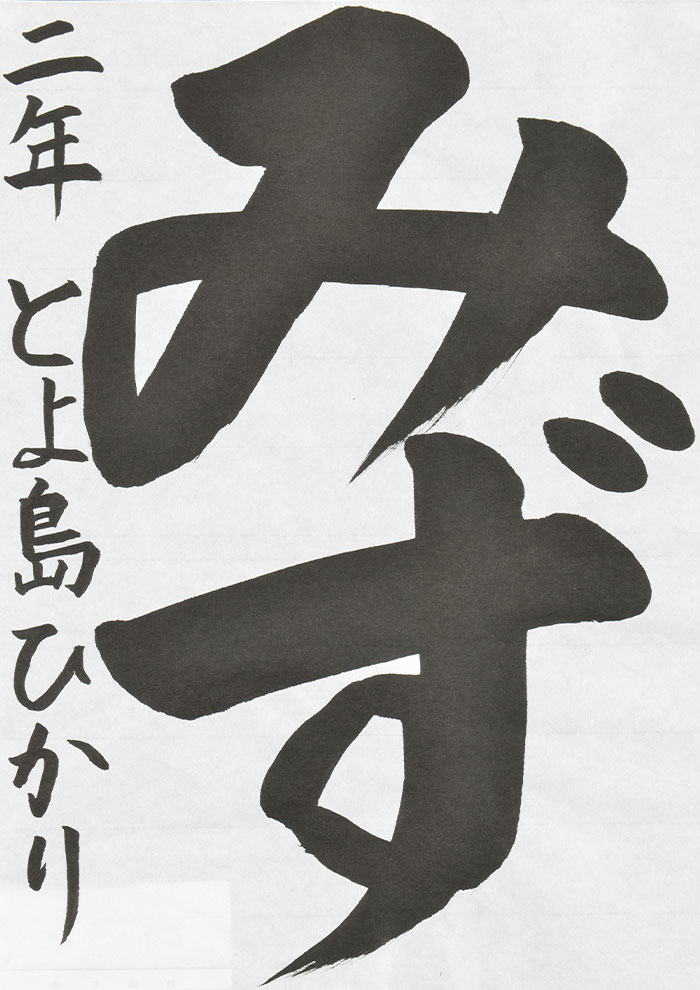 みず
二年 とよ島ひかり